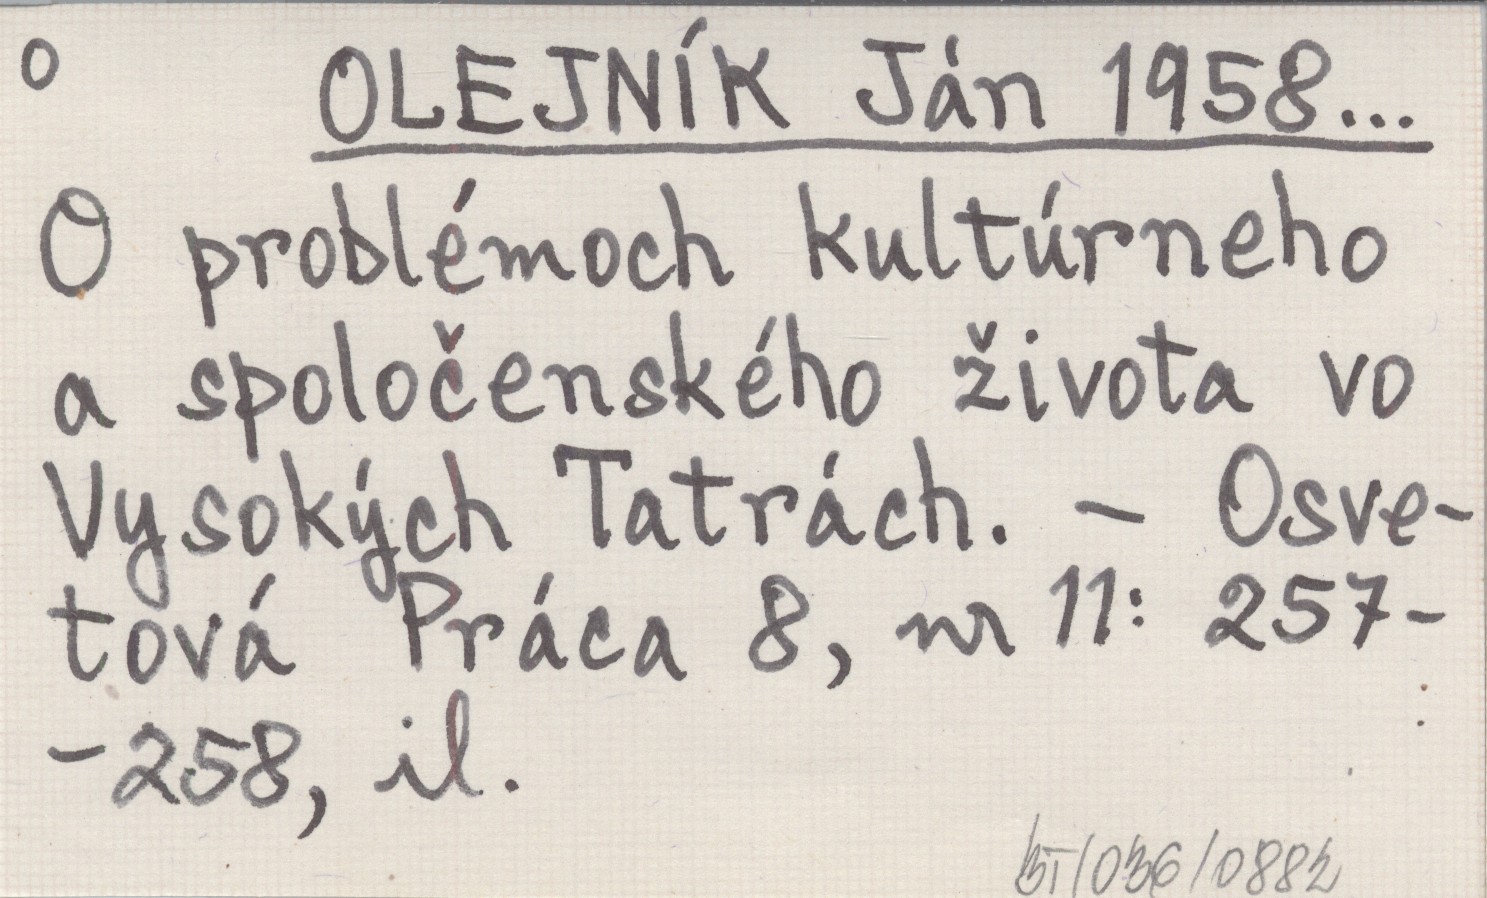 o OLEJNÍK Ján 1958...
O problémoch kultúrneho
a spoločenského života vo
Vysokých Tatrách. – Osve-
tová Práca 8, nr 11: 257-
-258, il.
BT/036/0882